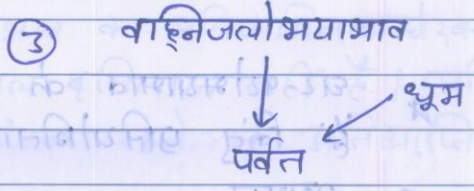 ③ वाह्निजलोभयाभाव
धूम
पर्वत